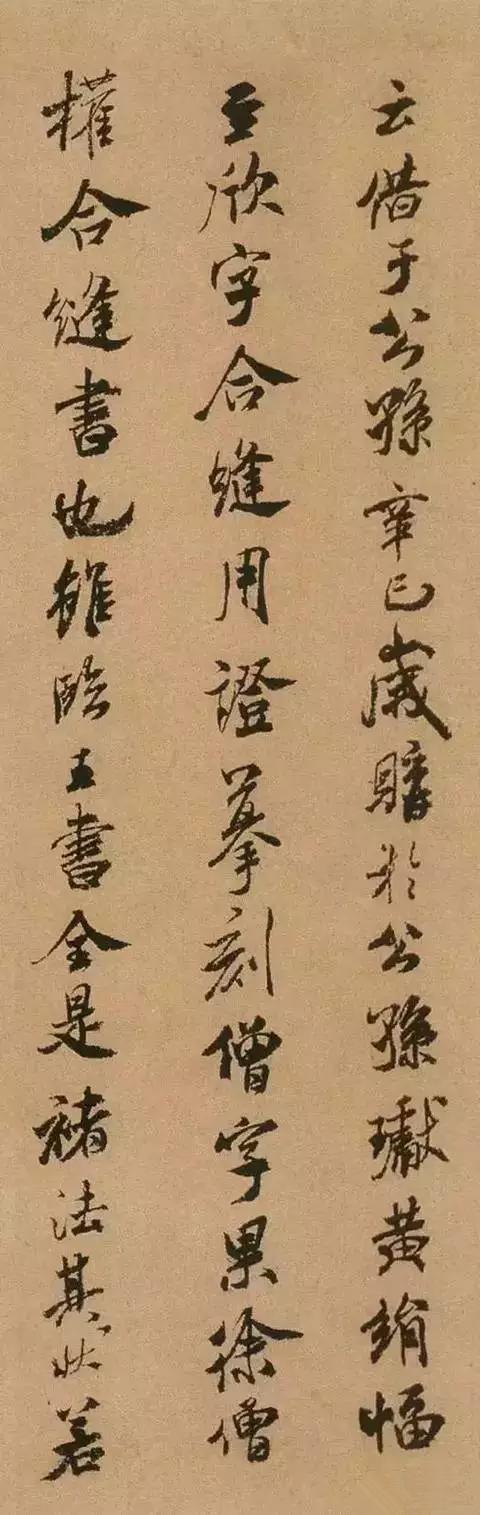 云借于公孫辛巳歲購於公孫瓛黃絹幅
至欣字合縫用證摹刻僧字果徐僧
權合縫書也雖臨王書全是褚法其狀若